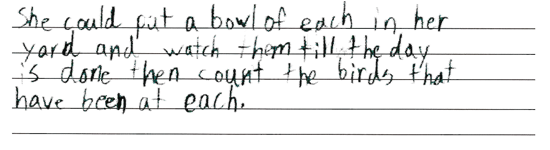 She could put a bowl of each in her
yard and watch them till the day
is done then count the birds that
have been at each.